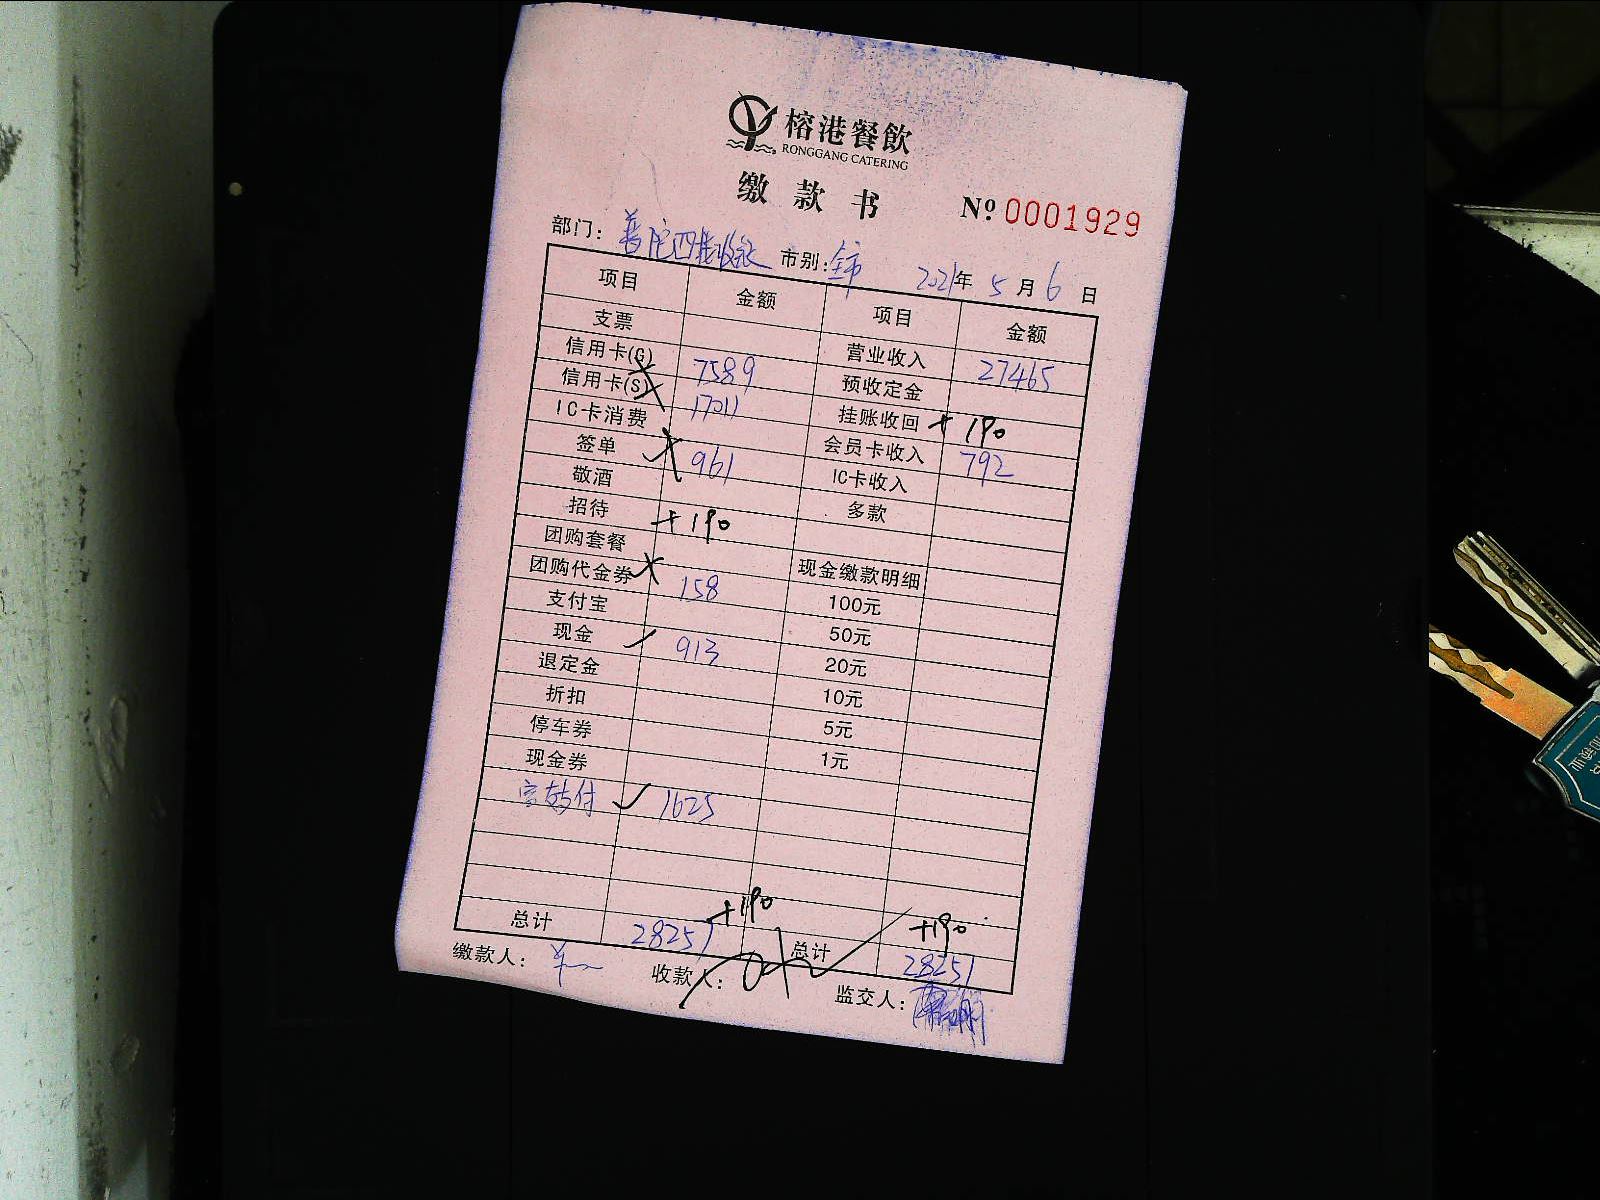 榕港餐飲
RONGGANG CATERING
缴款书 Nº 0001929
部门: 普陀四楼收银 市别: 全市 2021年 5月 6日
项目 金额 项目 金额
支票 营业收入 27465
信用卡(G) 7589 预收定金
信用卡(S) 17011 挂账收回 +190
IC卡消费 会员卡收入 792
签单 961 IC卡收入
敬酒 多款
招待 +190
团购套餐 现金缴款明细
团购代金券 158 100元
支付宝 50元
现金 913 20元
退定金 10元
折扣 5元
停车券 1元
现金券
1625
总计 28251 +190 总计 28251 +190
缴款人: 收款人: 监交人: